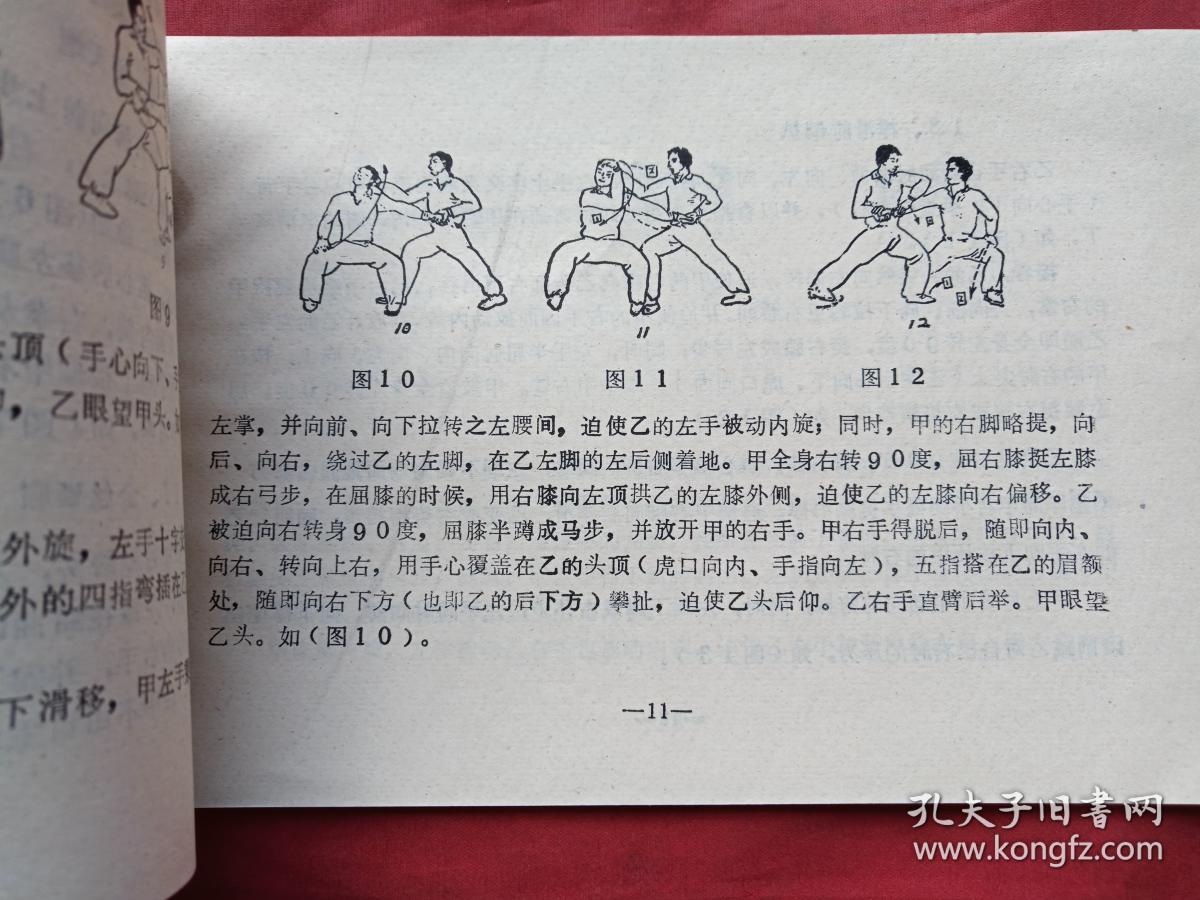 9
图9
顶（手心向下、
，乙眼望甲头。
外旋，左手十字
外的四指弯插在
下滑移，甲左手
10
11
12
图10
图11
图12
左掌，并向前、向下拉转之左腰间，迫使乙的左手被动内旋；同时，甲的右脚略提，向
后、向右，绕过乙的左脚，在乙左脚的左后侧着地。甲全身右转90度，屈右膝挺左膝
成右弓步，在屈膝的时候，用右膝向左顶拱乙的左膝外侧，迫使乙的左膝向右偏移。乙
被迫向右转身90度，屈膝半蹲成马步，并放开甲的右手。甲右手得脱后，随即向内、
向右、转向上右，用手心覆盖在乙的头顶（虎口向内、手指向左），五指搭在乙的眉额
处，随即向右下方（也即乙的后下方）攀扯，迫使乙头后仰。乙右手直臂后举。甲眼望
乙头。如（图10）。
—11—
孔夫子旧书网
www.kongfz.com